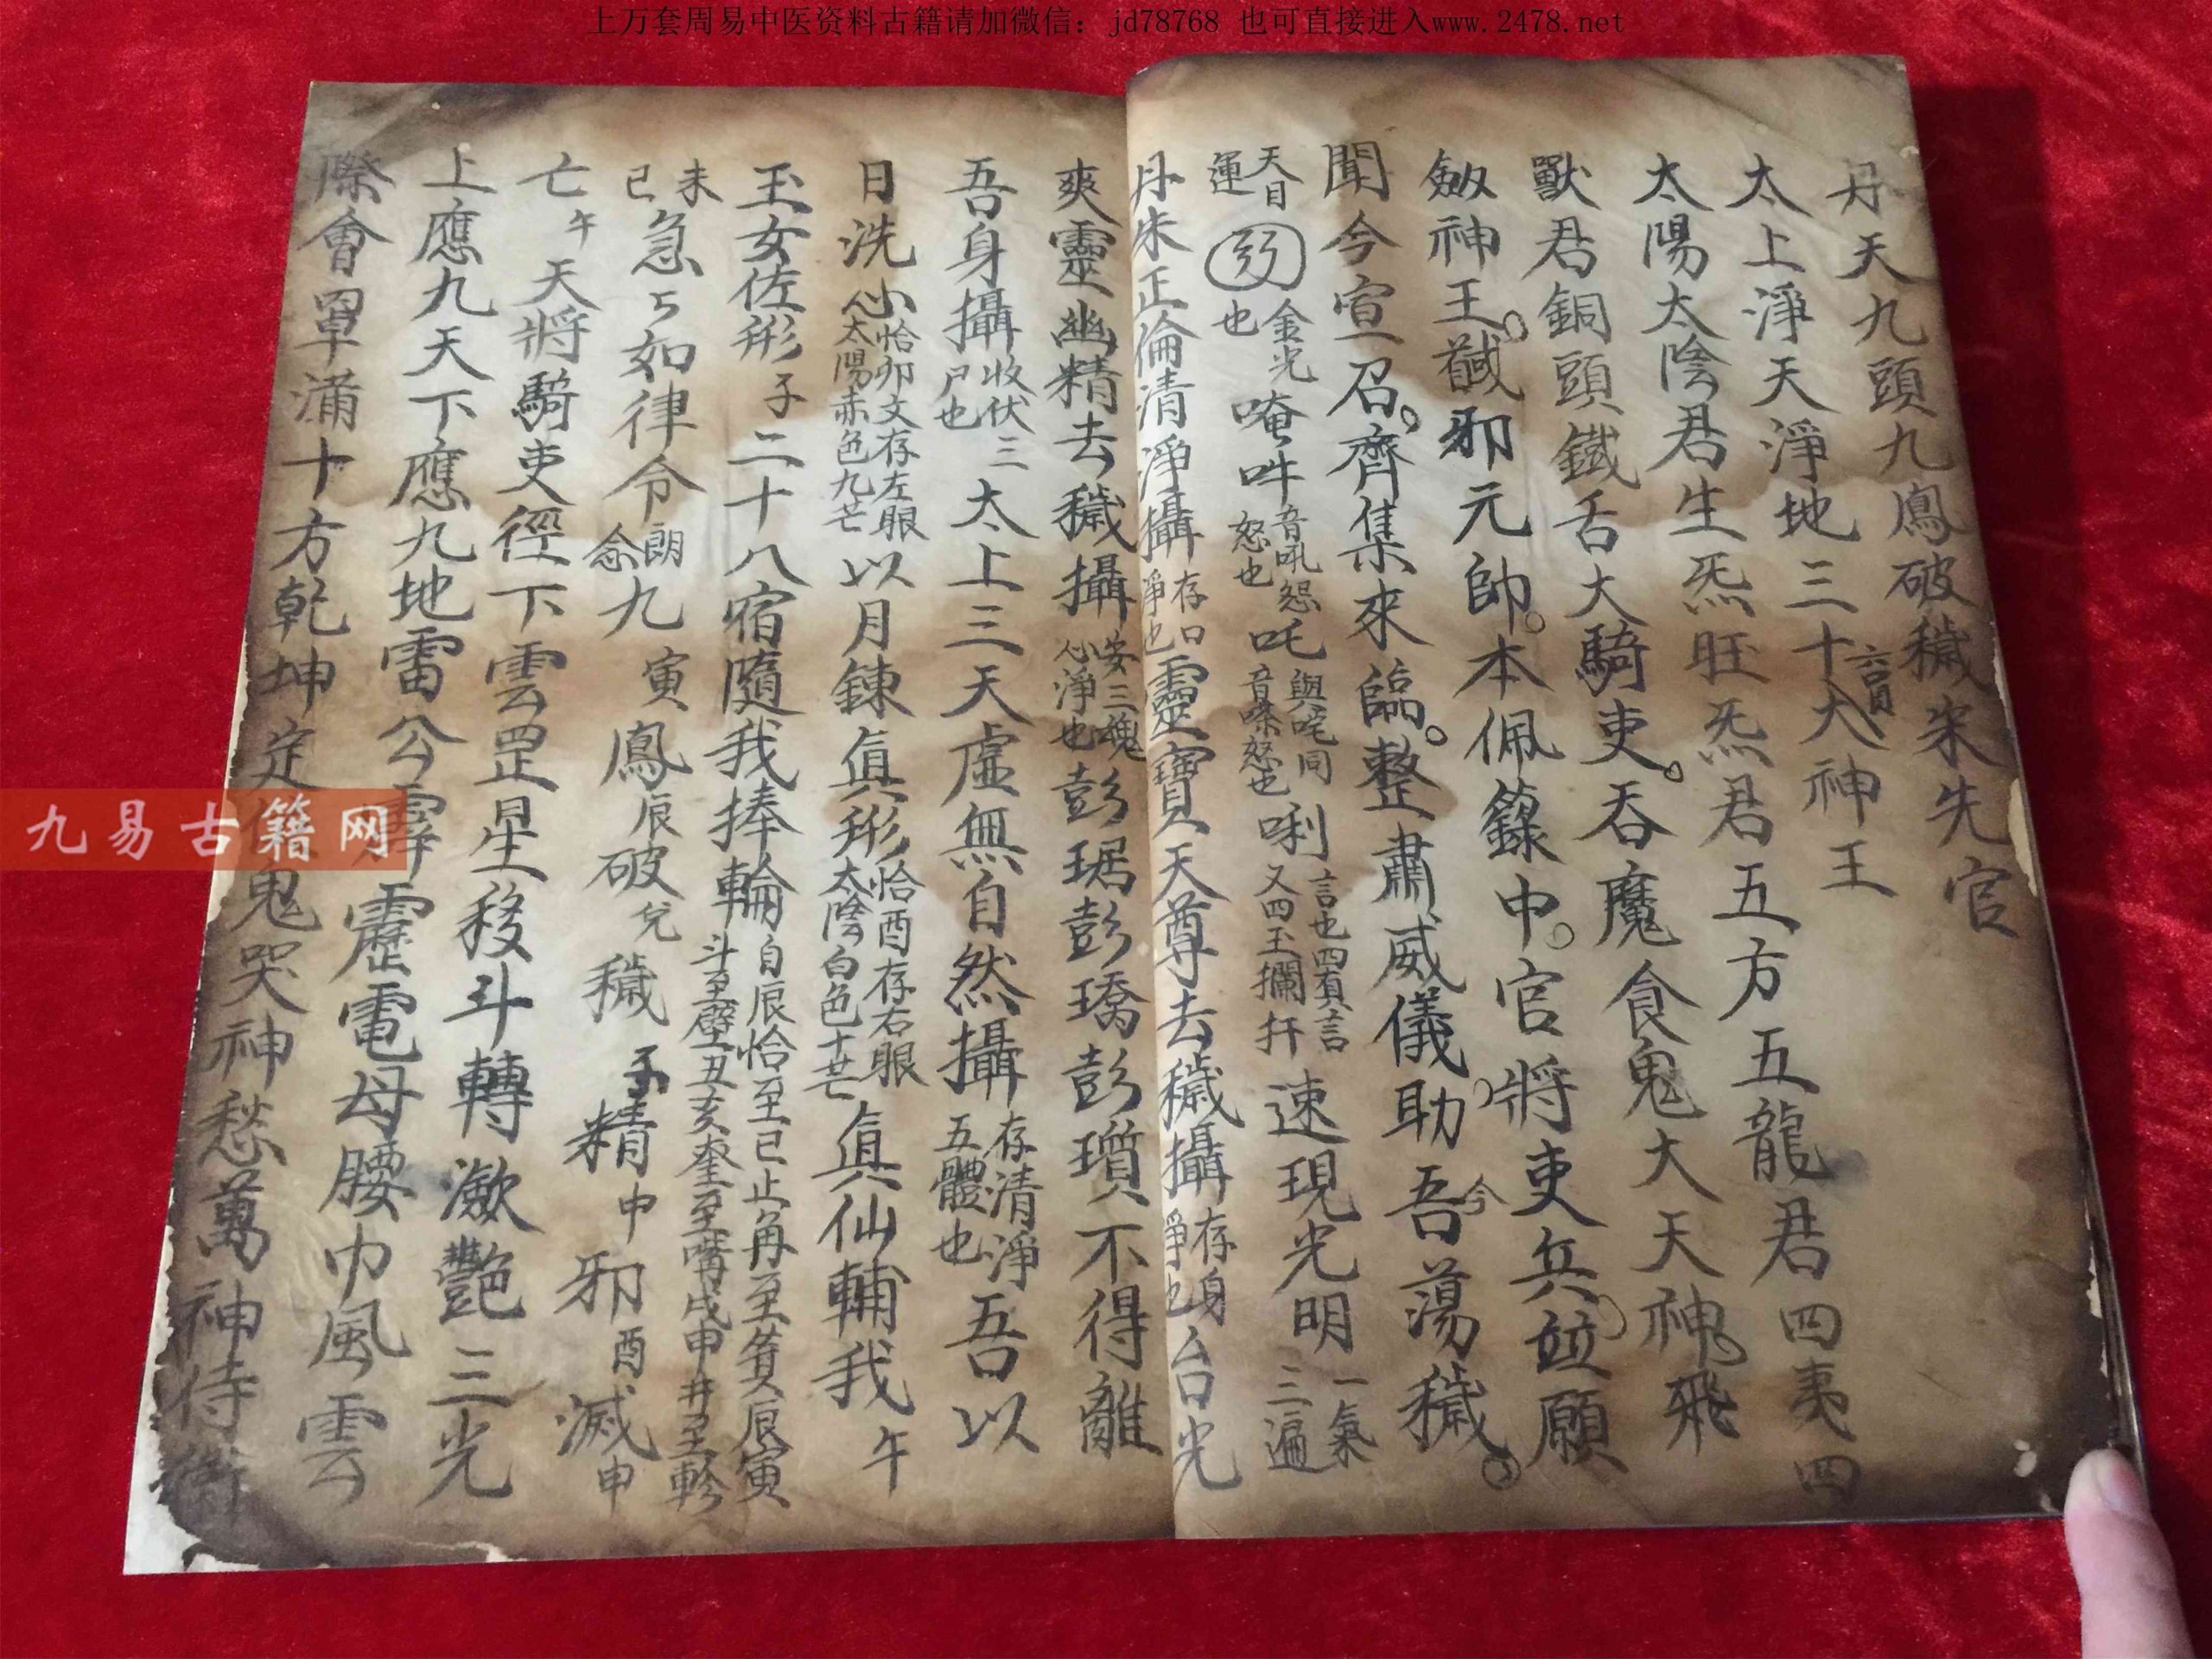 上万套周易中医资料古籍请加微信：jd78768 也可直接进入www.2478.net
丹天九頭九鳳破穢宋先官
太上淨天淨地三十六員大神王
太陽太陰君生炁旺炁君五方五龍君四夷四
獸君銅頭鐵舌大騎吏吞魔食鬼大天神飛
劔神王馘邪元帥本佩籙中官將吏兵竝願
聞今宣召齊集來臨整肅威儀助吾今蕩穢
天目運 金光也 唵吽音吼怨怒也吒與咤同音嗏怒也唎言也四真言又四玉攔扞速現光明一氣三遍
丹朱正倫清淨攝存口淨也靈寶天尊去穢攝存身淨也台光
爽靈幽精去穢攝安三魂心淨也彭琚彭瓊彭瓆不得離
吾身攝收伏三尸也太上三天虛無自然攝存清淨五體也吾以
日洗心恰卯文存左眼太陽赤色九芒以月鍊眞形恰酉存右眼太陰白色十芒眞仙輔我午
玉女佐形子二十八宿隨我捧輪自辰恰至巳止角至箕辰寅斗至壁丑亥奎至嘴戌申井至軫
未巳急々如律令朗念九寅鳳辰破兌穢子精中邪酉滅申
亡午天將騎吏徑下雲罡星移斗轉瀲艷三光
上應九天下應九地雷公霹靂電母腰巾風雲
際會罩滿十方乾坤定位鬼哭神愁萬神侍衛
九易古籍网